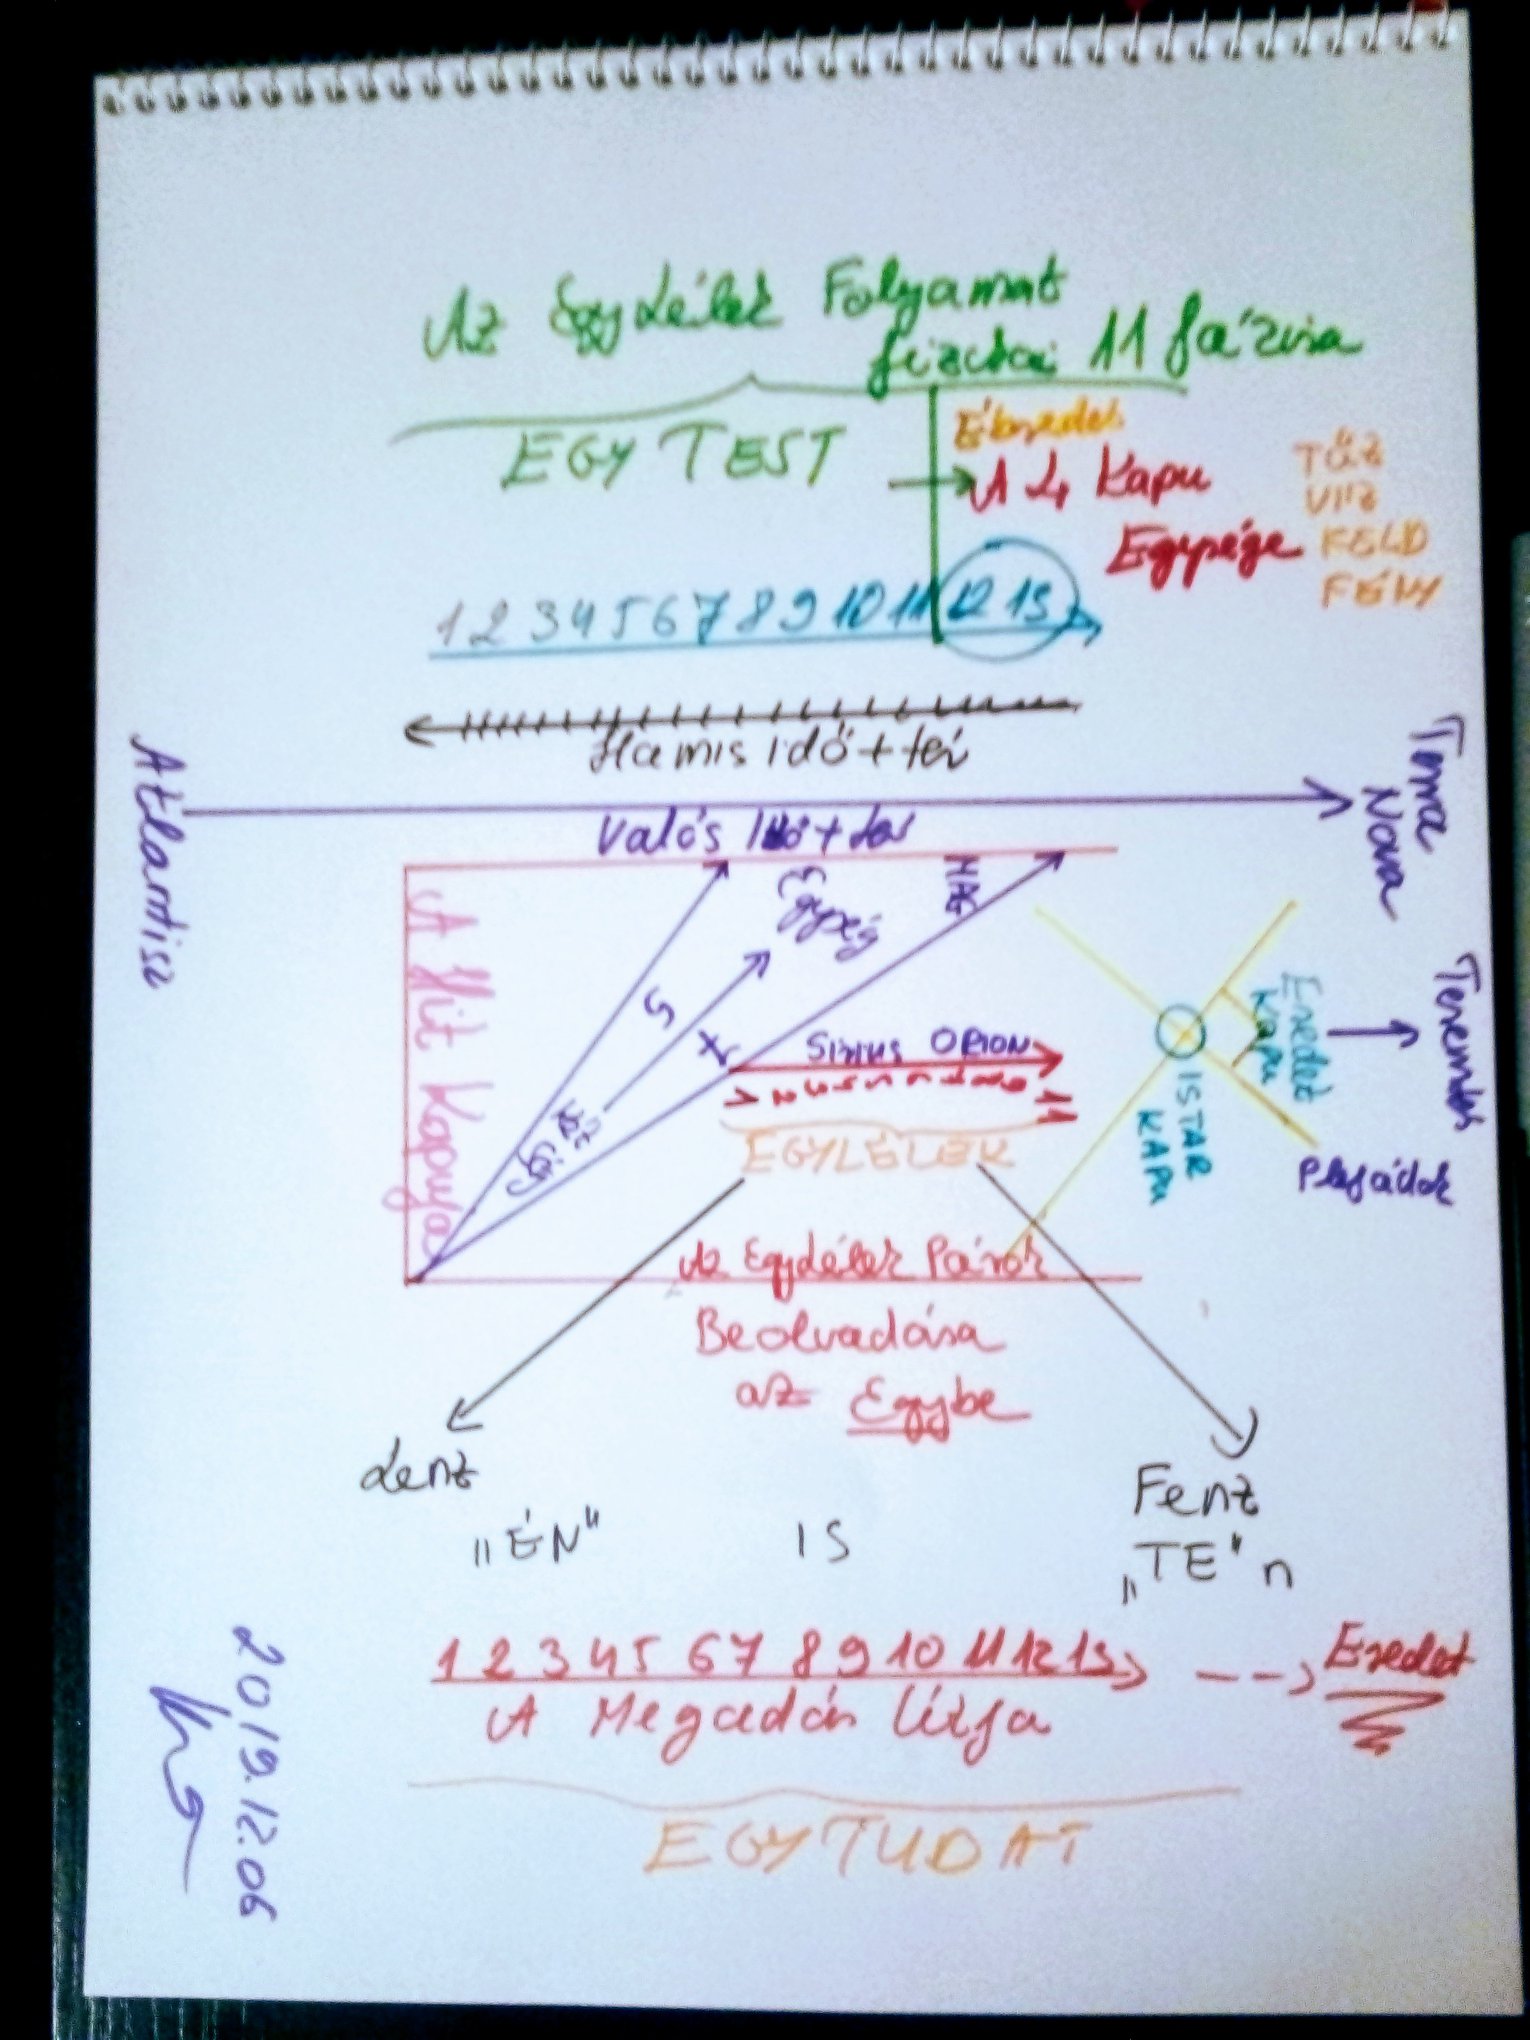 Az EgyLélek Folyamat
fizikai 11 fázisa
EGY TEST
Ébredés
A 4 Kapu
Egysége
TŰZ
VÍZ
FÖLD
FÉNY
1 2 3 4 5 6 7 8 9 10 11 12 13
Hamis idő + tér
Atlantisz
Terra
Nova
Valós Idő + tér
A Hit Kapuja
Egység
MAG
Sirius ORION
1 2 3 4 5 6 7 8 9 11
EGYLÉLEK
Eredet
Kapu
ISTAR
KAPU
Teremtés
Plejádok
Az EgyLélek Párok
Beolvadása
az Egybe
Lenz
Fenz
„ÉN"
IS
„TE" n
1 2 3 4 5 6 7 8 9 10 11 12 13
Eredet
A Megadás Útja
EGYTUDAT
2019.12.06